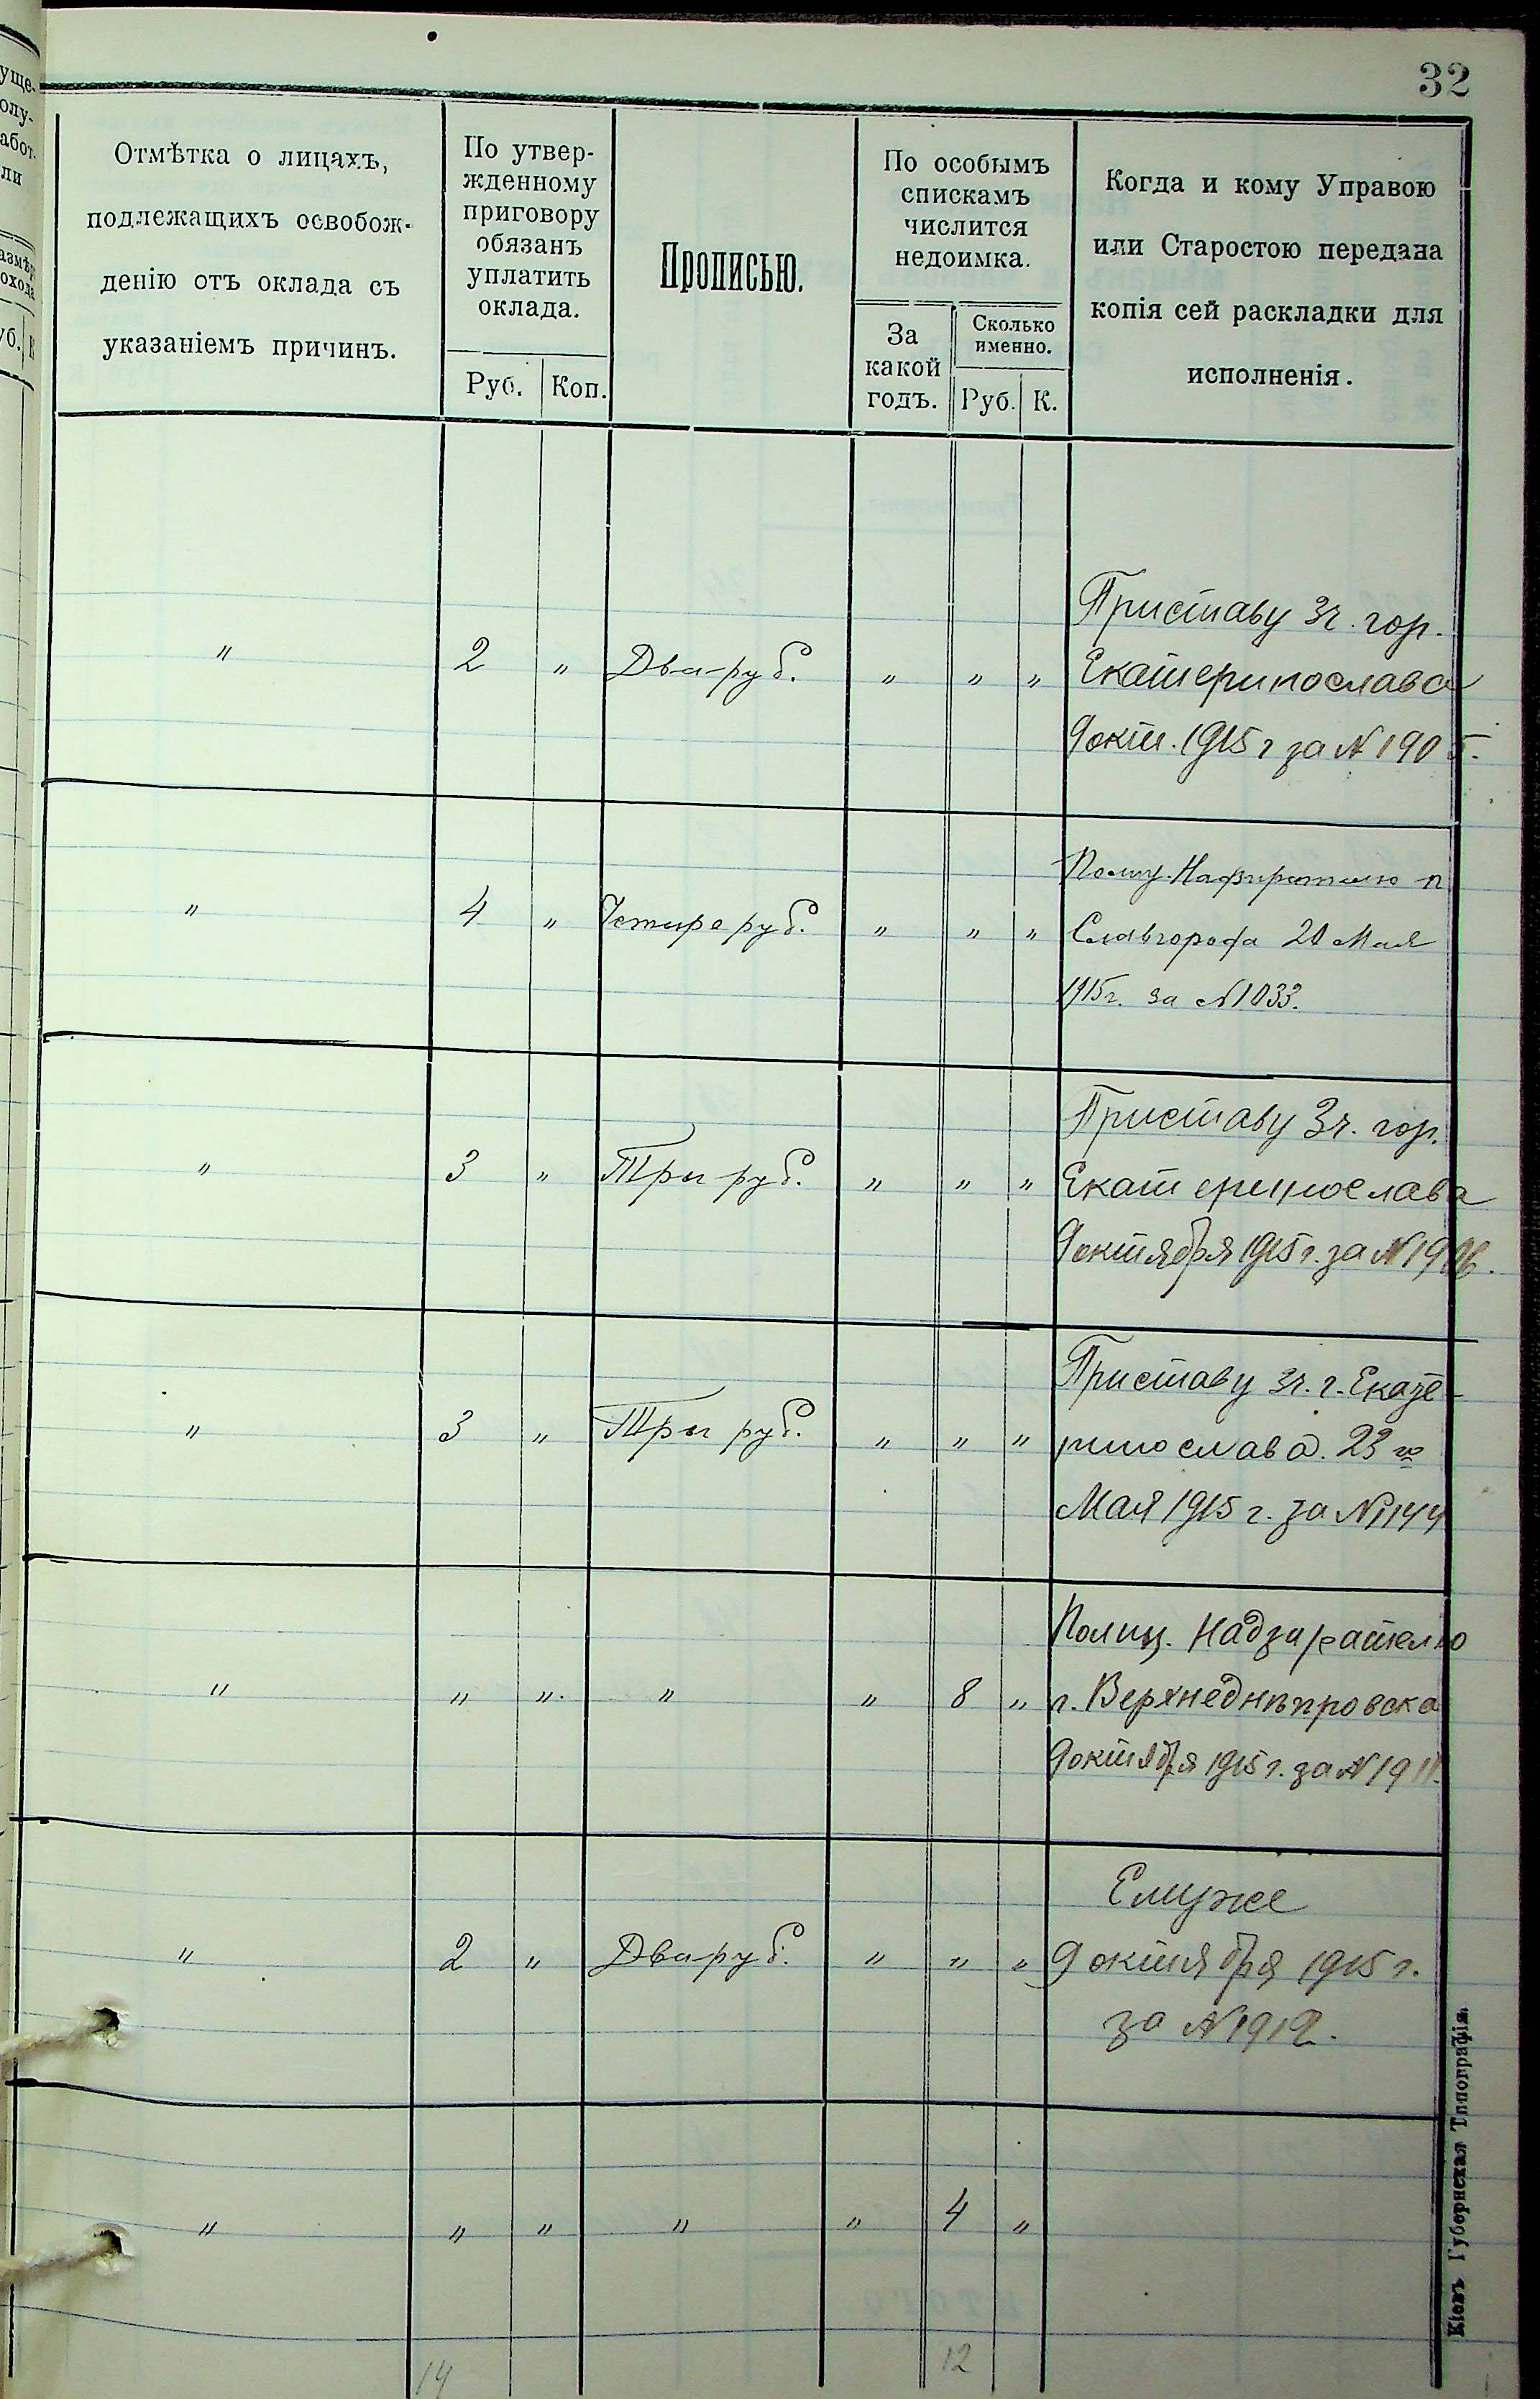 32
Отмѣтка о лицахъ,
подлежащихъ освобож-
денію отъ оклада съ
указаніемъ причинъ.
По утвер-
жденному
приговору
обязанъ
уплатить
оклада.
Руб. Коп.
Прописью.
По особымъ
спискамъ
числится
недоимка.
За
какой
годъ.
Сколько
именно.
Руб. К.
Когда и кому Управою
или Старостою передана
копія сей раскладки для
исполненія.
Приставу 3 ч. гор.
" 2 " Два руб. " " " Екатеринослава
9 окт. 1915 г за № 1905.
Надзирателю п
" 4 " Четыре руб. " " " Славгорода 20 Мая
1915 г. за № 1033.
Приставу 3 ч. гор.
" 3 " Три руб. " " " Екатеринослава
9 октября 1915 г. за № 1906.
Приставу 3 ч. г. Екате-
" 3 " Три руб. " " " ринослава. 23 го
Мая 1915 г. за № 1144
Полиц. Надзирателю
" " " " " 8 " г. Верхнеднѣпровска
9 октября 1915 г. за № 1911.
Ему же
" 2 " Два руб. " " " 9 октября 1915 г.
за № 1912.
" " " " " 4 "
14 12
Кіевъ Губернская Типографія.
уще-
олу-
абот-
ли
азмѣр
охода
уб.